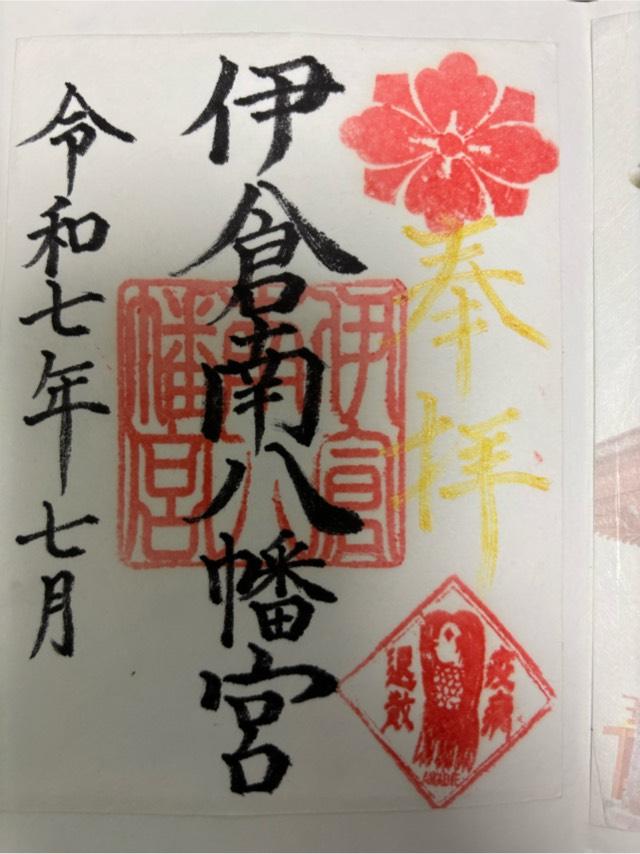 奉拝
疫病
退散
AMABIE
伊倉南八幡宮
伊倉南八幡宮
令和七年七月